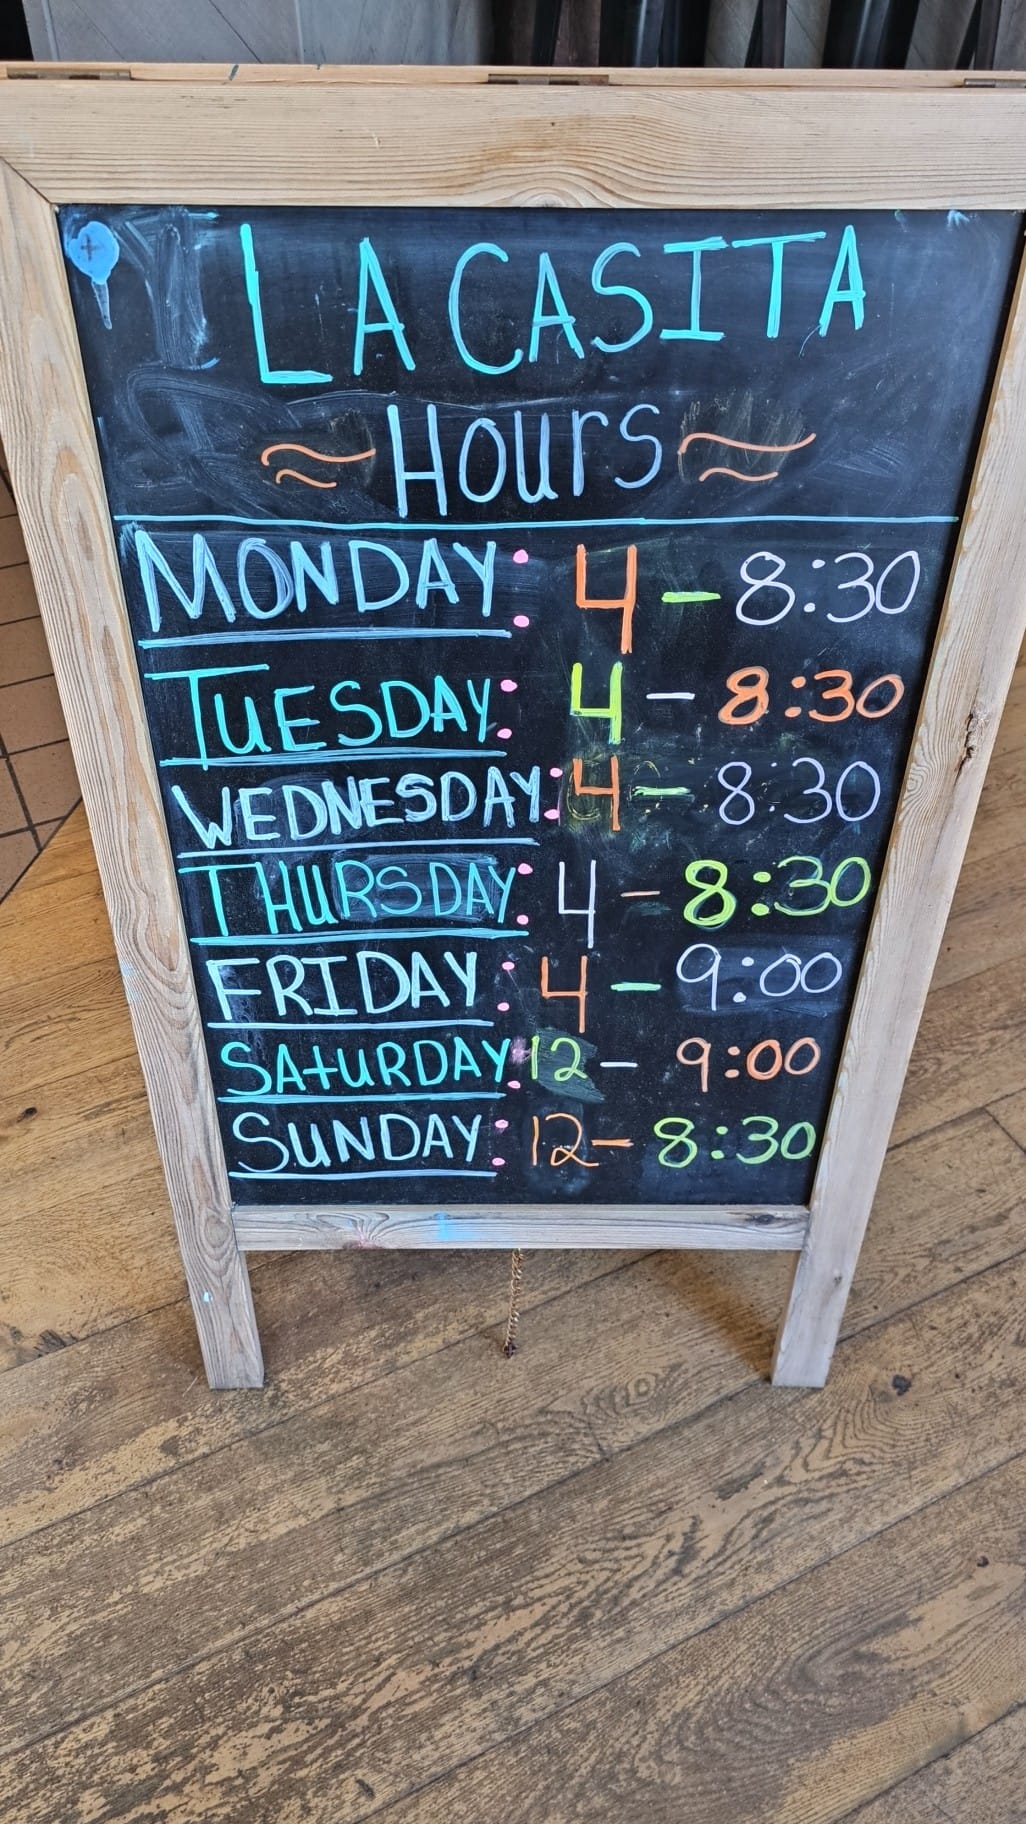 LA CASITA
≈ Hours ≈
MONDAY: 4 - 8:30
TUESDAY: 4 - 8:30
WEDNESDAY: 4 - 8:30
THURSDAY: 4 - 8:30
FRIDAY: 4 - 9:00
SATURDAY: 12 - 9:00
SUNDAY: 12 - 8:30